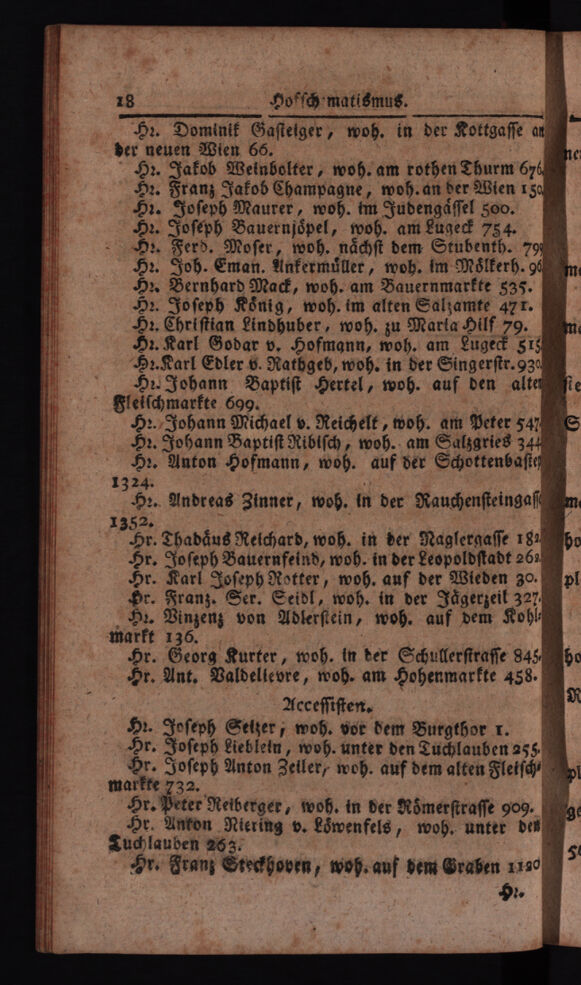 18 Hofschematismus.
Hr. Dominik Gasteiger, woh. in der Kottgasse an
der neuen Wien 66.
Hr. Jakob Weinbolter, woh. am rothen Thurm 676.
Hr. Franz Jakob Champagne, woh. an der Wien 150
Hr. Joseph Maurer, woh. im Judengässel 500.
Hr. Joseph Bauernjöpel, woh. am Lugeck 754.
Hr. Ferd. Moser, woh. nächst dem Stubenth. 79
Hr. Joh. Eman. Ankermüller, woh. im Mölkerh. 96
Hr. Bernhard Mack, woh. am Bauernmarkte 535.
Hr. Joseph König, woh. im alten Salzamte 471.
Hr. Christian Lindhuber, woh. zu Maria Hilf 79.
Hr. Karl Godar v. Hofmann, woh. am Lugeck 515
Hr. Karl Edler v. Rathgeb, woh. in der Singerstr. 930
Hr. Johann Baptist Hertel, woh. auf den alten
Fleischmarkte 699.
Hr. Johann Michael v. Reichelt, woh. am Peter 547
Hr. Johann Baptist Ribisch, woh. am Salzgries 344
Hr. Anton Hofmann, woh. auf der Schottenbastey
1324.
Hr. Andreas Zinner, woh. in der Rauchensteingasse
1352.
Hr. Thadäus Reichard, woh. in der Naglergasse 182
Hr. Joseph Bauernfeind, woh. in der Leopoldstadt 262
Hr. Karl Joseph Rotter, woh. auf der Wieden 30.
Hr. Franz. Ser. Seidl, woh. in der Jägerzeil 327.
Hr. Vinzenz von Adlerstein, woh. auf dem Kohl-
markt 136.
Hr. Georg Kurter, woh. in der Schullerstrasse 845.
Hr. Ant. Valdelievre, woh. am Hohenmarkte 458.
Accessisten.
Hr. Joseph Selzer, woh. vor dem Burgthor 1.
Hr. Joseph Lieblein, woh. unter den Tuchlauben 255.
Hr. Joseph Anton Zeiler, woh. auf dem alten Fleisch-
markte 732.
Hr. Peter Reiberger, woh. in der Römerstrasse 909.
Hr. Anton Niering v. Löwenfels, woh. unter den
Tuchlauben 263.
Hr. Franz Steckhoven, woh. auf dem Graben 1120
Hr.